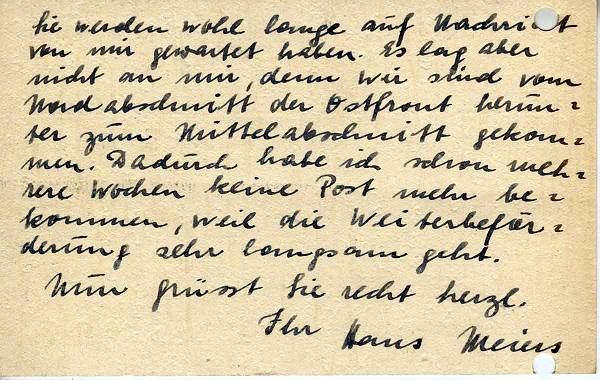 Sie werden wohl lange auf Nachricht
von mir gewartet haben. Es lag aber
nicht an mir, denn wir sind vom
Nordabschnitt der Ostfront herun=
ter zum Mittelabschnitt gekom=
men. Dadurch habe ich schon meh=
rere Wochen keine Post mehr be=
kommen, weil die Weiterbeför=
derung sehr langsam geht.
Nun grüsst Sie recht herzl.
Ihr Hans Meiers